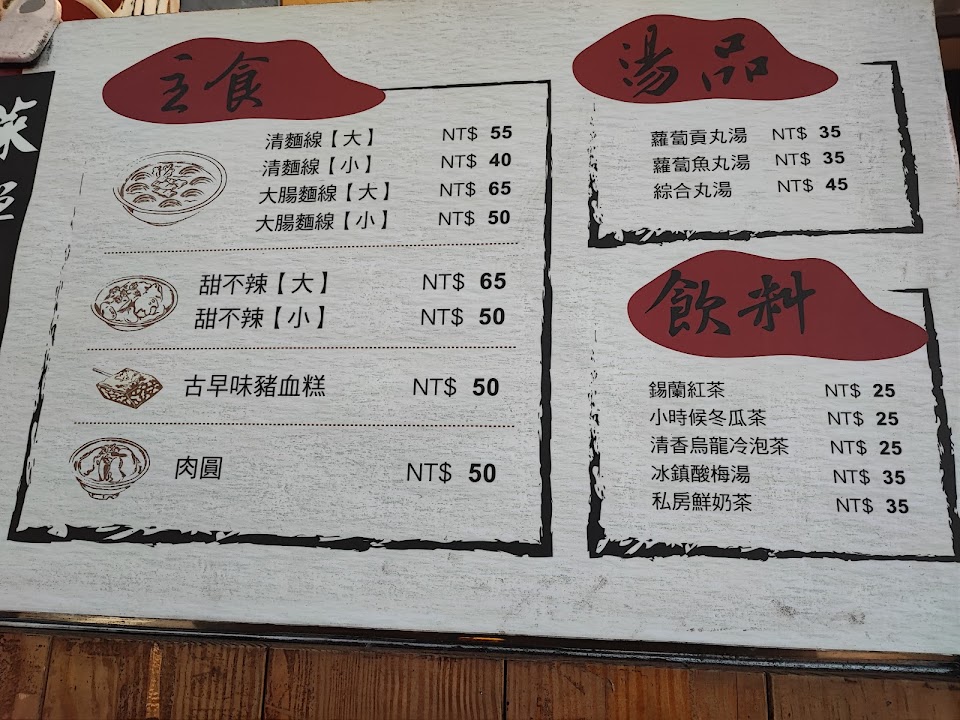 主食
清麵線【大】 NT$ 55
清麵線【小】 NT$ 40
大腸麵線【大】 NT$ 65
大腸麵線【小】 NT$ 50
甜不辣【大】 NT$ 65
甜不辣【小】 NT$ 50
古早味豬血糕 NT$ 50
肉圓 NT$ 50
湯品
蘿蔔貢丸湯 NT$ 35
蘿蔔魚丸湯 NT$ 35
綜合丸湯 NT$ 45
飲料
錫蘭紅茶 NT$ 25
小時候冬瓜茶 NT$ 25
清香烏龍冷泡茶 NT$ 25
冰鎮酸梅湯 NT$ 35
私房鮮奶茶 NT$ 35